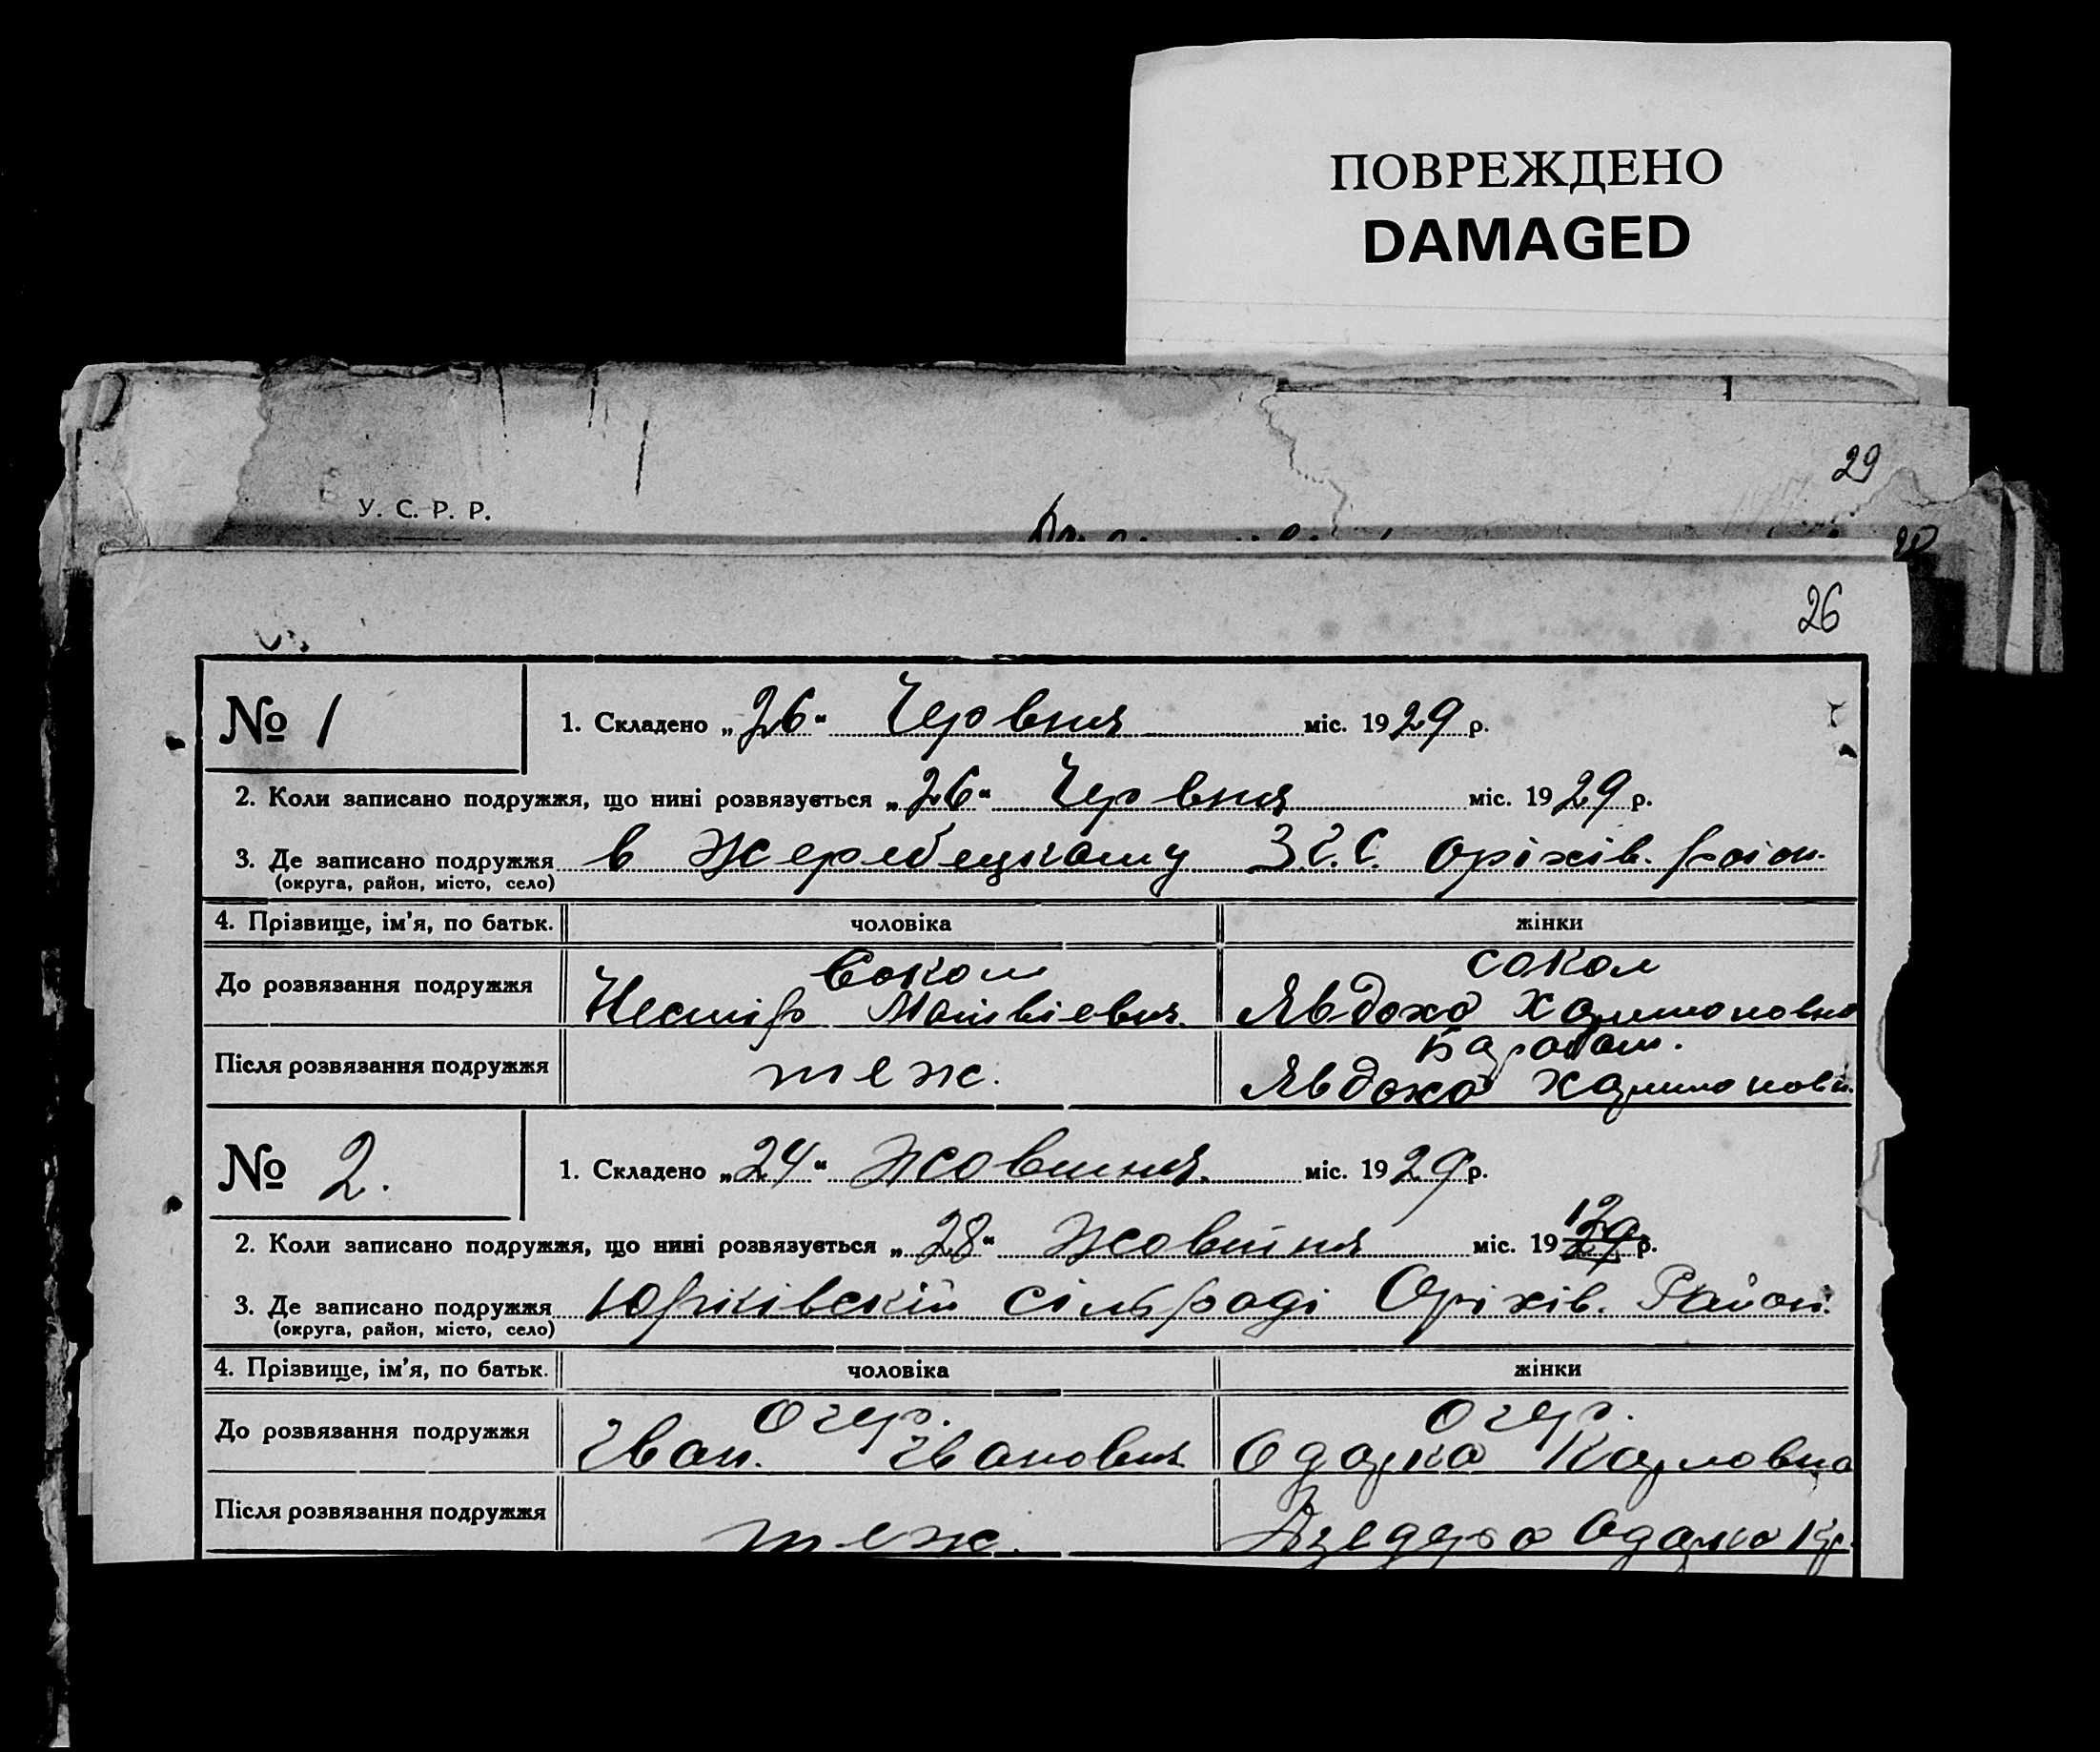 ПОВРЕЖДЕНО
DAMAGED
29
У. С. Р. Р.
26
№ 1
1. Складено „26“ Червня міс. 1929 р.
2. Коли записано подружжя, що нині розвязується „26“ Червня міс. 1929 р.
3. Де записано подружжя в Жеребецкому З.С. Оріхів. район.
(округа, район, місто, село)
4. Прізвище, ім'я, по батьк. чоловіка жінки
Сокол Сокол
До розвязання подружжя Нестір Матвіевич. Явдоха Харитоновна
Карабаш.
Після розвязання подружжя теж. Явдоха Харитоновн.
№ 2.
1. Складено „24“ Жовтня. міс. 1929 р.
2. Коли записано подружжя, що нині розвязується „28“ Жовтня міс. 19 12 р.
3. Де записано подружжя Юрківській сільраді Оріхів. Район.
(округа, район, місто, село)
4. Прізвище, ім'я, по батьк. чоловіка жінки
Огер. Огер.
До розвязання подружжя Іван. Іванович Одарка Карловна
Після розвязання подружжя теж. Одарка